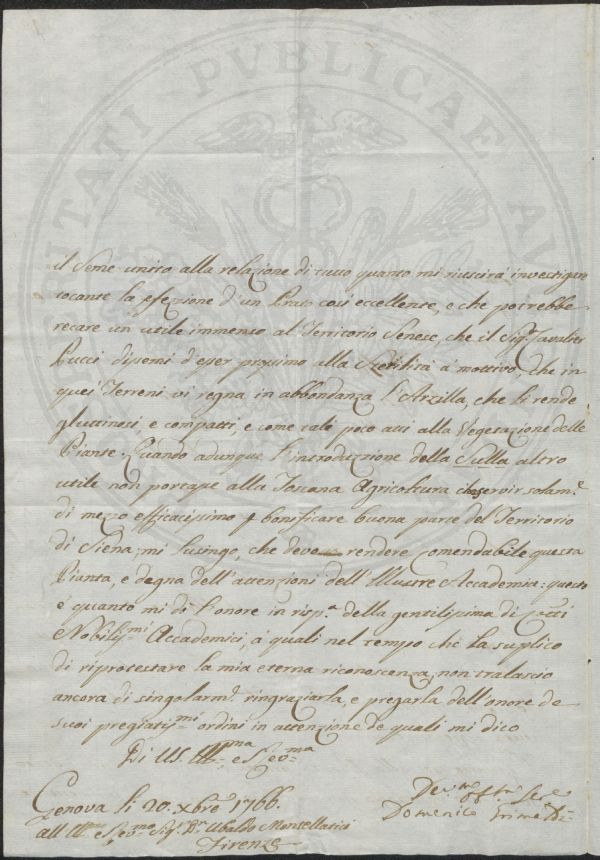 il Seme unito alla relazione di tutto quanto mi riuscirà investigare
tocante la perfezione d'un Prato così eccellente, e che potrebbe
recare un utile immenso al Territorio Senese, che il Sig.r Cavalier
Pucci dissemi d'esser prossimo alla Sterilità à mottivo, che in
quei Terreni vi regna in abbondanza l'Arzilla, che li rende
gluttinosi e compatti, e come tale poco atti alla Vegetazione delle
Piante. Quando adunque l'introduzione della Sulla altro
utile non portasse alla Toscana Agricoltura che servir solam.e
di mezzo efficacissimo p bonificare buona parte del Territorio
di Siena, mi lusingo, che deve rendere comendabile questa
Pianta, e degna dell'attenzioni dell'Illustre Accademia: questo
è quanto mi dò l'onore in risp.a della gentilissima di
Nobiliss.mi Accademici, à quali nel tempo che la suplico
di riprotestare la mia eterna riconoscenza, non tralascio
ancora di singolarm.e ringraziarla, e pregarla dell'onore de
suoi pregiatiss.mi ordini in attenzione de quali mi dico
Di V.S. Ill.ma e
Genova li 20. Xbre 1766.
Dev.mo Ser.e
Domenico
all' Ill.mo e Sig. D.r Ubaldo Montellatici
Firenze
SPERITATI PVBLICAE AV